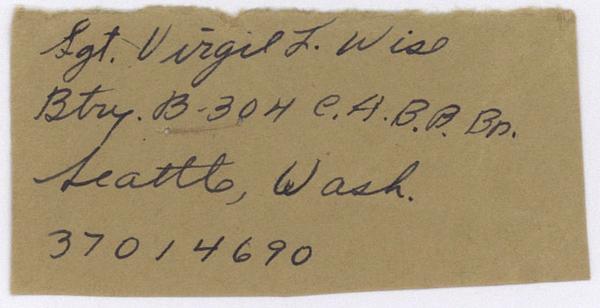 Sgt. Virgil L. Wise
Btry. B-304 C.A.B.B. Bn.
Seattle, Wash.
37014690